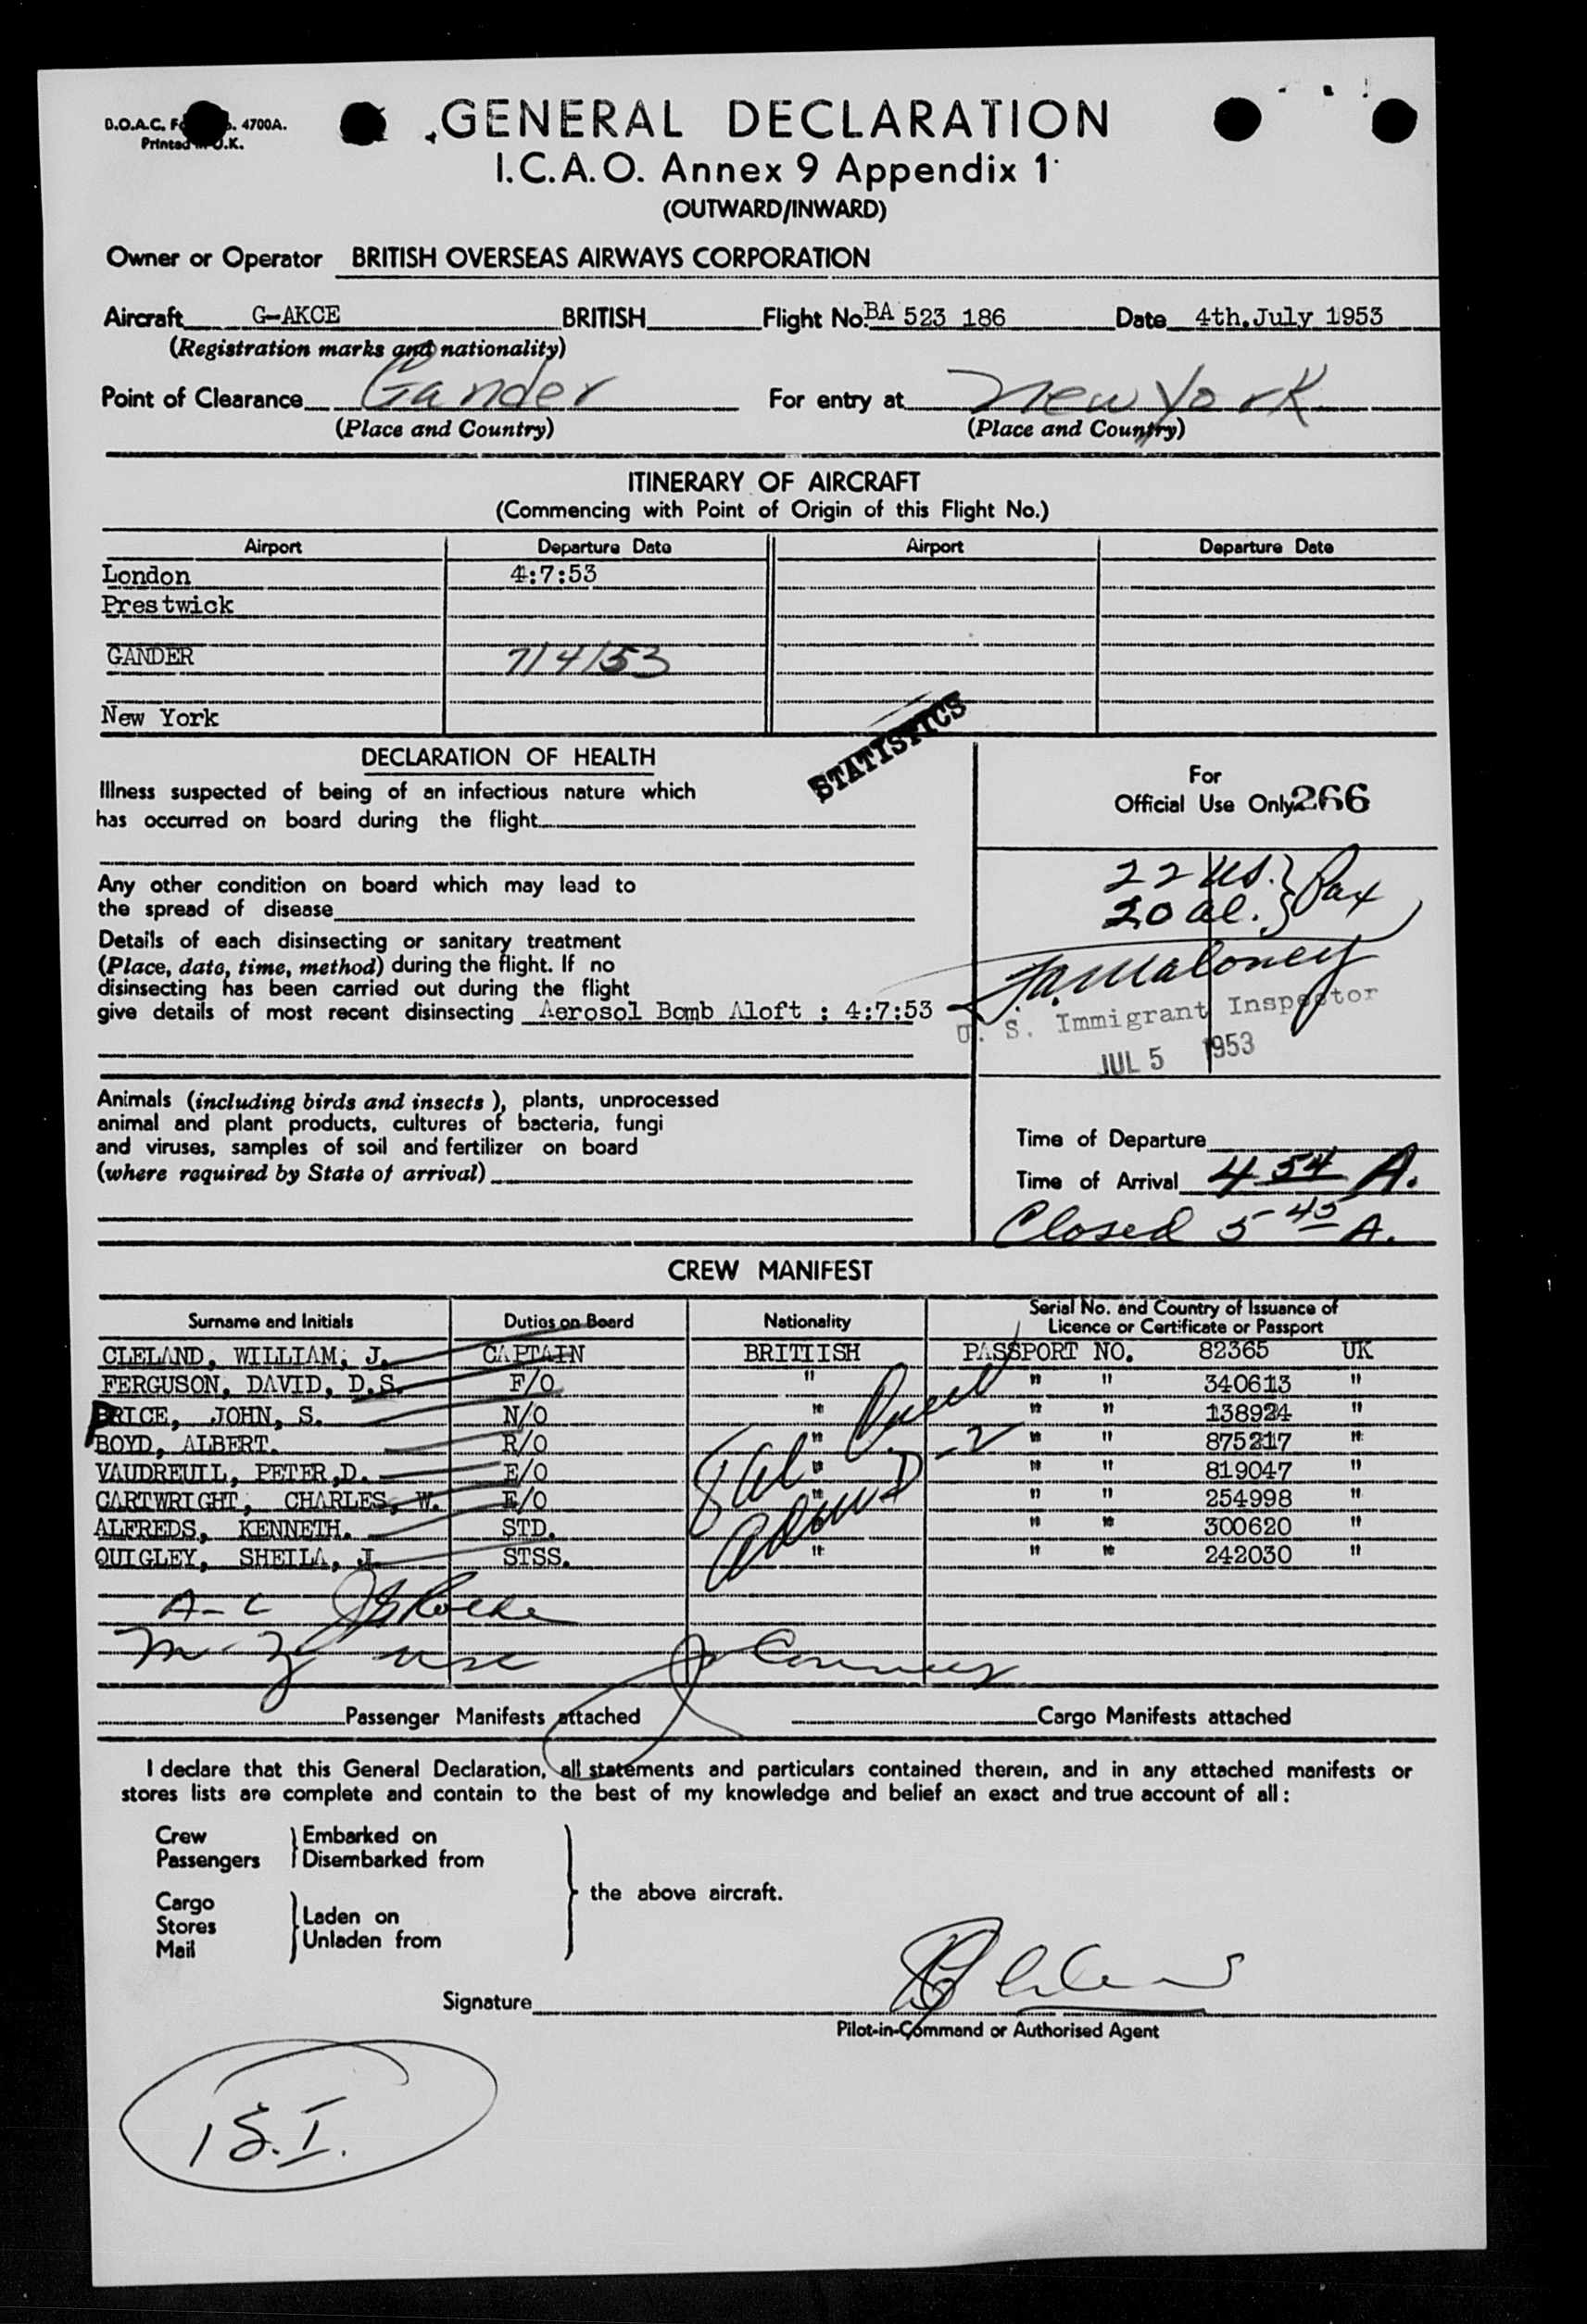 B.O.A.C. F 4700A.
Printed U.K.
GENERAL DECLARATION
I.C.A.O. Annex 9 Appendix 1
(OUTWARD/INWARD)
Owner or Operator BRITISH OVERSEAS AIRWAYS CORPORATION
Aircraft G-AKCE BRITISH Flight No. BA 523 186 Date 4th.July 1953
(Registration marks and nationality)
Point of Clearance Gander For entry at New York
(Place and Country) (Place and Country)
ITINERARY OF AIRCRAFT
(Commencing with Point of Origin of this Flight No.)
Airport Departure Date Airport Departure Date
London 4:7:53
Prestwick
GANDER 7/4/53
New York
STATISTICS
DECLARATION OF HEALTH
Illness suspected of being of an infectious nature which
has occurred on board during the flight
Any other condition on board which may lead to
the spread of disease
Details of each disinsecting or sanitary treatment
(Place, date, time, method) during the flight. If no
disinsecting has been carried out during the flight
give details of most recent disinsecting Aerosol Bomb Aloft : 4:7:53
Animals (including birds and insects), plants, unprocessed
animal and plant products, cultures of bacteria, fungi
and viruses, samples of soil and fertilizer on board
(where required by State of arrival)
For
Official Use Only 266
22 US. } Pax
20 al. }
Maloney
U. S. Immigrant Inspector
JUL 5 1953
Time of Departure
Time of Arrival 4 54 A.
Closed 5 45 A.
CREW MANIFEST
Surname and Initials Duties on Board Nationality Serial No. and Country of Issuance of
Licence or Certificate or Passport
CLELAND, WILLIAM, J. CAPTAIN BRITIISH PASSPORT NO. 82365 UK
FERGUSON, DAVID, D.S. F/O " " " 340613 "
PRICE, JOHN, S. N/O " " " 138924 "
BOYD, ALBERT. R/O " " " 875217 "
VAUDREUIL, PETER,D. E/O " " " 819047 "
CARTWRIGHT, CHARLES, W. E/O " " " 254998 "
ALFREDS, KENNETH. STD. " " 300620 "
QUIGLEY, SHEILA, J. STSS. " " " 242030 "
Passenger Manifests attached Cargo Manifests attached
I declare that this General Declaration, all statements and particulars contained therein, and in any attached manifests or
stores lists are complete and contain to the best of my knowledge and belief an exact and true account of all:
Crew } Embarked on
Passengers } Disembarked from
the above aircraft.
Cargo
Stores } Laden on
Mail } Unladen from
Signature
Pilot-in-Command or Authorised Agent